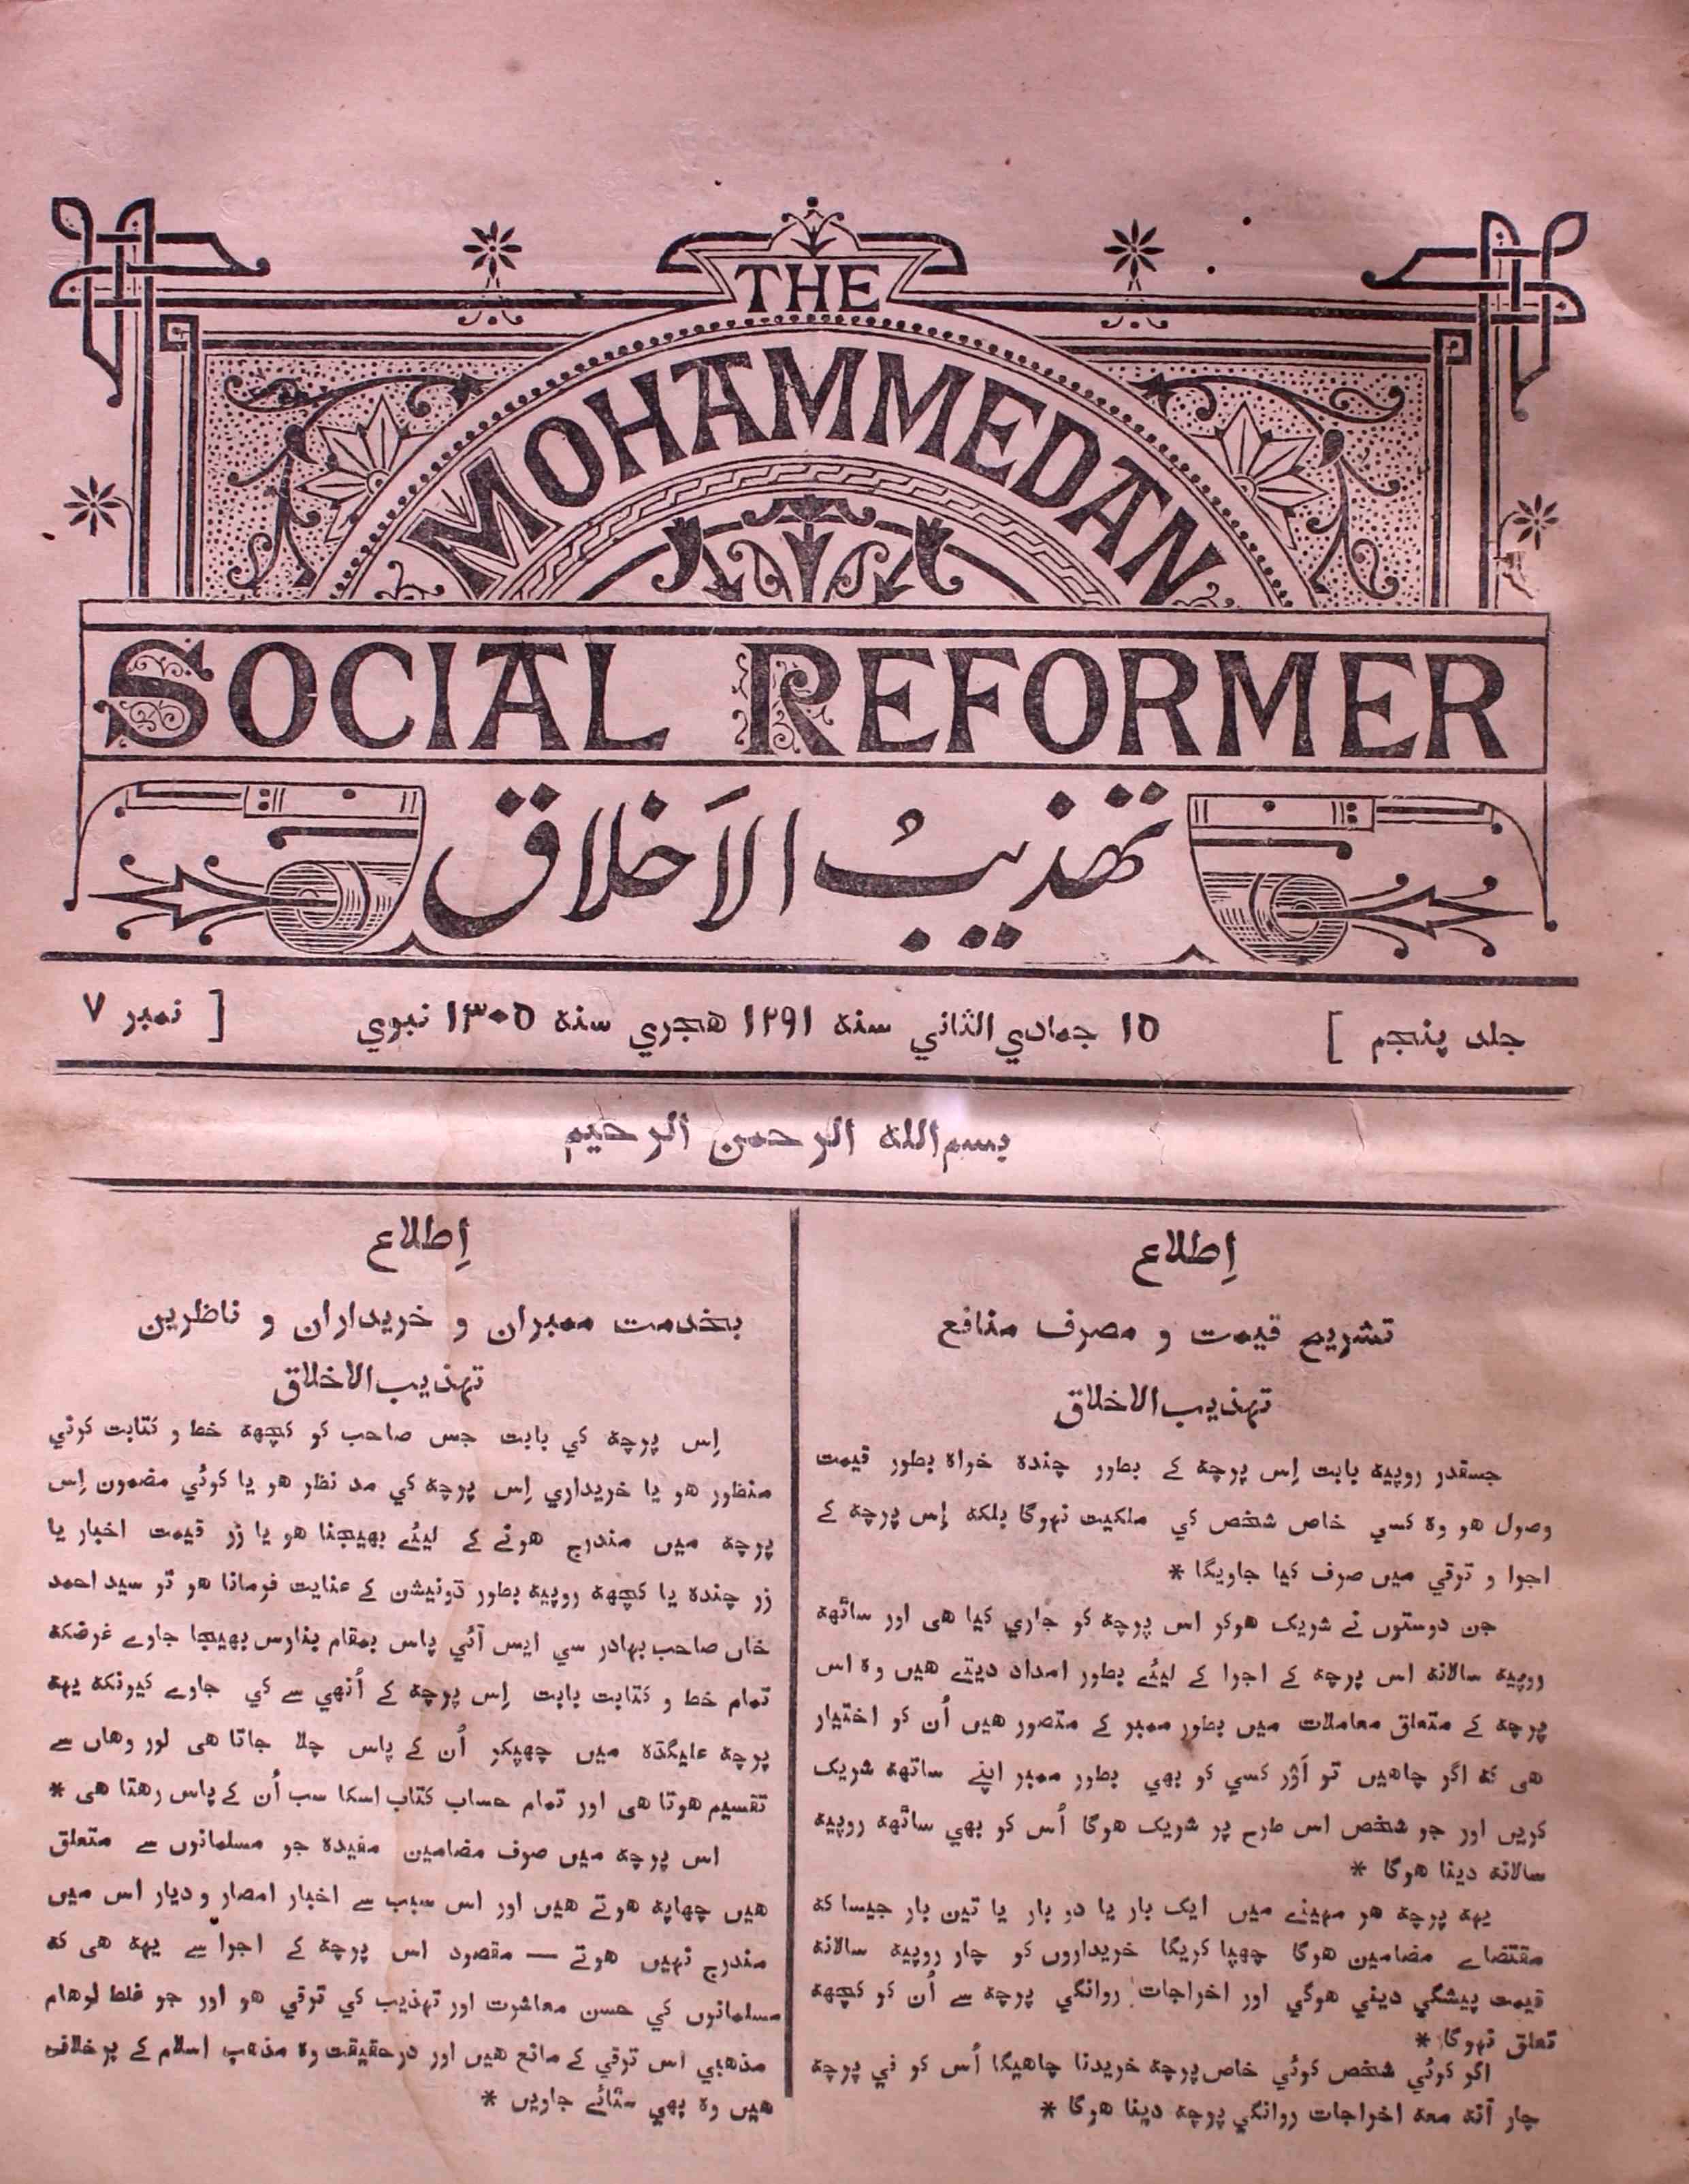 THE
MOHAMMEDAN
SOCIAL REFORMER
تهذيبُ الاَخلاق
جلد پنجم ] ١٥ جمادي الثاني سنه ١٢٩١ هجري سنه ١٣٠٥ نبوي [ نمبر ٧
بسم الله الرحمن الرحيم
اِطلاع
تشريح قيمت و مصرف منافع
تهذيب الاخلاق
جسقدر روپيه بابت اِس پرچه کے بطور چنده خواه بطور قيمت
وصول هو وه کسي خاص شخص کي ملکيت نهوگا بلکه اِس پرچه کے
اجرا و ترقي ميں صرف کيا جاويگا *
جن دوستوں نے شريک هوکر اس پرچه کو جاري کيا هی اور ساٹهه
روپيه سالانه اس پرچه کے اجرا کے ليئے بطور امداد ديتے هيں وه اس
پرچه کے متعلق معاملات ميں بطور ممبر کے متصور هيں اُن کو اختيار
هی که اگر چاهيں تو اَوْر کسي کو بهي بطور ممبر اپنے ساتهه شريک
کريں اور جو شخص اس طرح پر شريک هوگا اُس کو بهي ساٹهه روپيه
سالانه دينا هوگا *
يهه پرچه هر مهينے ميں ايک بار يا دو بار يا تين بار جيسا که
مقتضاے مضامين هوگا چهپا کريگا خريداروں کو چار روپيه سالانه
قيمت پيشگي ديني هوگي اور اخراجات روانگي پرچه سے اُن کو کچهه
تعلق نهوگا *
اگر کوئي شخص کوئي خاص پرچه خريدنا چاهيگا اُس کو في پرچه
چار آنه معه اخراجات روانگي پرچه دينا هوگا *
اِطلاع
بخدمت ممبران و خريداران و ناظرين
تهذيب الاخلاق
اِس پرچه کي بابت جس صاحب کو کچهه خط و کتابت کرني
منظور هو يا خريداري اِس پرچه کي مد نظر هو يا کوئي مضمون اِس
پرچه ميں مندرج هونے کے ليئے بهيجنا هو يا زر قيمت اخبار يا
زر چنده يا کچهه روپيه بطور ڈونيشن کے عنايت فرمانا هو تو سيد احمد
خاں صاحب بهادر سي ايس آئي پاس بمقام بنارس بهيجا جاوے غرضکه
تمام خط و کتابت بابت اِس پرچه کے اُنهي سے کي جاوے کيونکه يهه
پرچه عليگڈه ميں چهپکر اُن کے پاس چلا جاتا هی اور وهاں سے
تقسيم هوتا هی اور تمام حساب کتاب اسکا سب اُن کے پاس رهتا هی *
اس پرچه ميں صرف مضامين مفيده جو مسلمانوں سے متعلق
هيں چهاپه هوتے هيں اور اس سبب سے اخبار امصار و ديار اس ميں
مندرج نهيں هوتے — مقصود اس پرچه کے اجرا سے يهه هی که
مسلمانوں کي حسن معاشرت اور تهذيب کي ترقي هو اور جو غلط اوهام
مذهبي اس ترقي کے مانع هيں اور درحقيقت وه مذهب اسلام کے برخلاف
هيں وه بهي مٹائے جاويں *